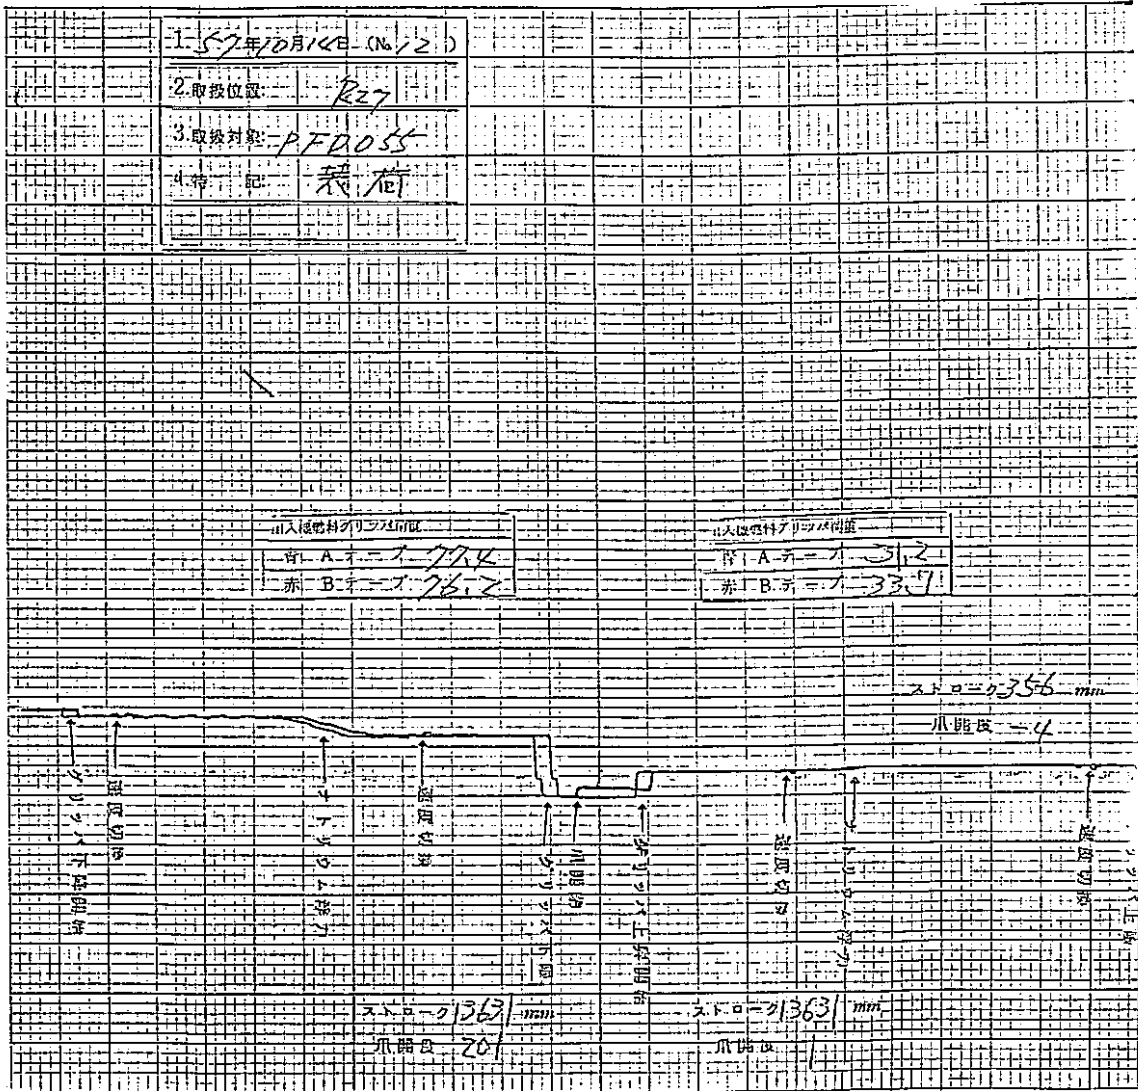 1. 57年10月14日 (No.12)
2.取扱位置 R27
3.取扱対象 PFD055
4.特記 装荷
出入機燃料グリッパ荷重
青 A テープ 77.4
赤 B テープ 76.2
出入機燃料グリッパ荷重
青 A テープ 31.2
赤 B テープ 33.7
ストローク 356 mm
爪開度 -4
グリッパ下降開始
速度切換
ナトリウム浮力
速度切換
グリッパ下端
爪開始
グリッパ上昇開始
速度切換
ナトリウム浮力
速度切換
ストローク 13631 mm
爪開度 201
ストローク 13631 mm
爪開度 1